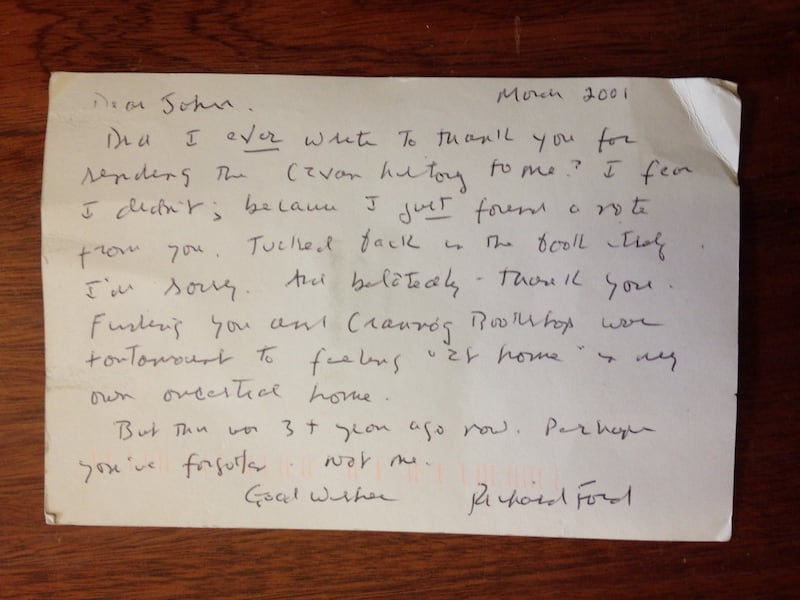 Dear John. March 2001
Did I ever write to thank you for
sending the Cavan history to me? I fear
I didn't; because I just found a note
from you. Tucked back in the book itself.
I'm sorry. And belatedly - thank you.
Finding you and Crannóg Bookshop was
tantamount to feeling "at home" in my
own ancestral home.
But this was 3+ years ago now. Perhaps
you've forgotten. Not me.
Good wishes Richard Ford